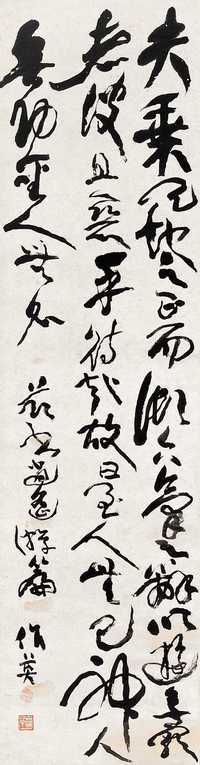 夫乘天地之正而御六氣之辯以遊無窮
者彼且惡乎待哉故曰至人無己神人
無功聖人無名 莊子逍遙游篇 作英